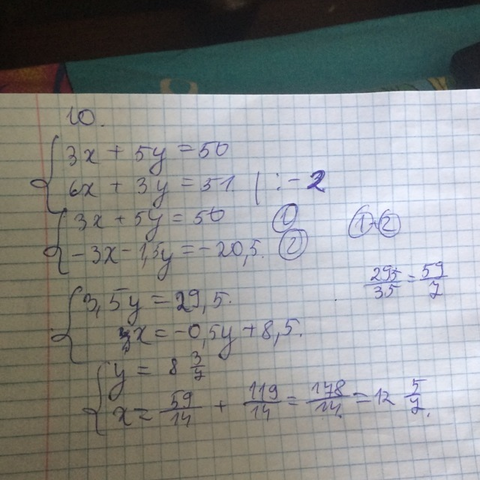 10.
3x + 5y = 50
6x + 3y = 51 | : -2
3x + 5y = 50 ①
-3x - 1,5y = -20,5. ②
① ②
295/35 = 59/7
3,5y = 29,5.
x = -0,5y + 8,5.
y = 8 3/7
x = 59/14 + 119/14 = 178/14 = 12 5/7.